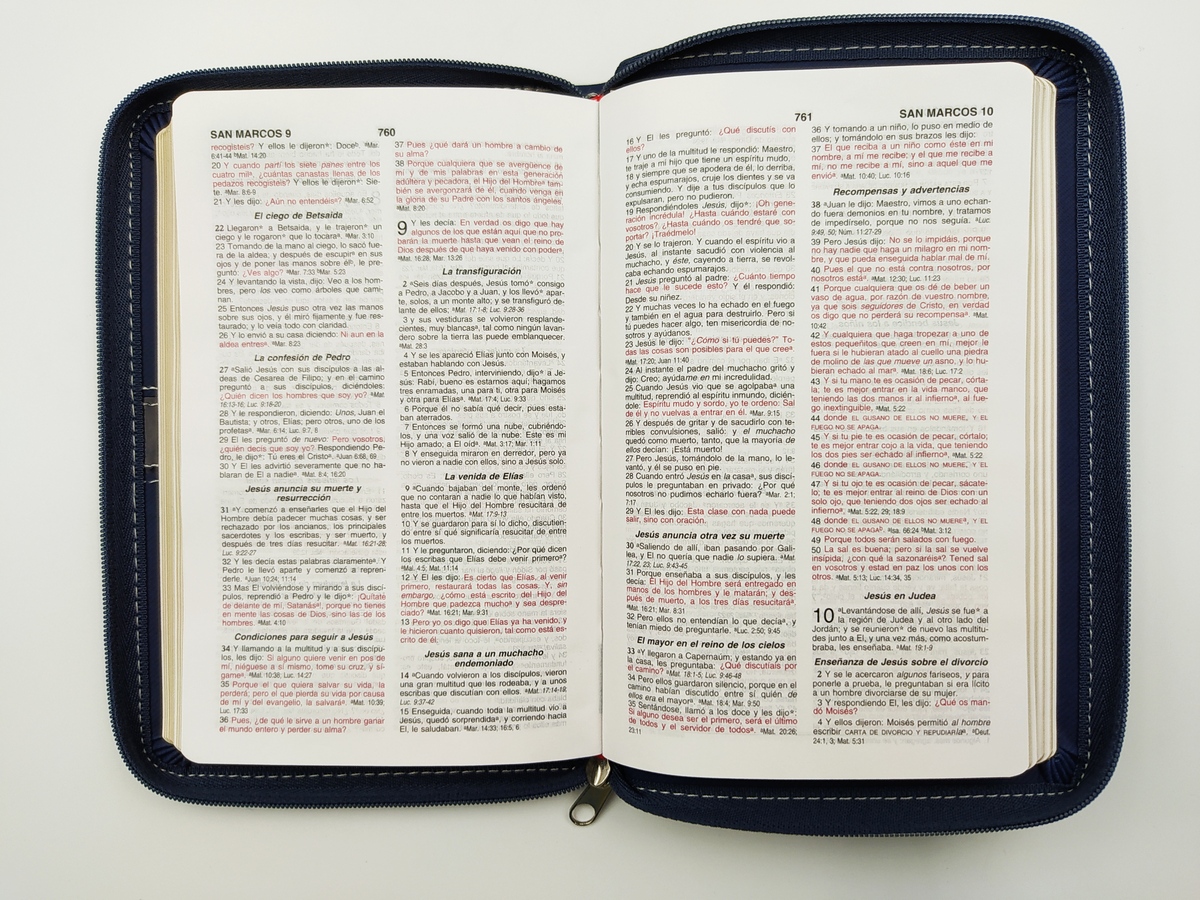 SAN MARCOS 9
760
recogisteis? Y ellos le dijeron*: Doceᵇ. ªMar.
6:41-44 ᵇMat. 14:20
20 Y cuando partí los siete panes entre los
cuatro milª, ¿cuántas canastas llenas de los
pedazos recogisteis? Y ellos le dijeron*: Sie-
te. ªMar. 8:6-9
21 Y les dijo: ¿Aún no entendéisª? ªMar. 6:52
El ciego de Betsaida
22 Llegaron* a Betsaida, y le trajeron* un
ciego y le rogaron* que lo tocaraª. ªMar. 3:10
23 Tomando de la mano al ciego, lo sacó fue-
ra de la aldea; y después de escupirª en sus
ojos y de poner las manos sobre élᵇ, le pre-
guntó: ¿Ves algo? ªMar. 7:33 ᵇMar. 5:23
24 Y levantando la vista, dijo: Veo a los hom-
bres, pero los veo como árboles que cami-
nan.
25 Entonces Jesús puso otra vez las manos
sobre sus ojos, y él miró fijamente y fue res-
taurado; y lo veía todo con claridad.
26 Y lo envió a su casa diciendo: Ni aun en la
aldea entresª. ªMar. 8:23
La confesión de Pedro
27 ªSalió Jesús con sus discípulos a las al-
deas de Cesarea de Filipo; y en el camino
preguntó a sus discípulos, diciéndoles:
¿Quién dicen los hombres que soy yo? ªMat.
16:13-16; Luc. 9:18-20
28 Y le respondieron, diciendo: Unos, Juan el
Bautista; y otros, Elías; pero otros, uno de los
profetasª. ªMar. 6:14; Luc. 9:7, 8
29 El les preguntó de nuevo: Pero vosotros,
¿quién decís que soy yo? Respondiendo Pe-
dro, le dijo*: Tú eres el Cristoª. ªJuan 6:68, 69
30 Y El les advirtió severamente que no ha-
blaran de El a nadieª. ªMat. 8:4; 16:20
Jesús anuncia su muerte y
resurrección
31 ªY comenzó a enseñarles que el Hijo del
Hombre debía padecer muchas cosas, y ser
rechazado por los ancianos, los principales
sacerdotes y los escribas, y ser muerto, y
después de tres días resucitar. ªMat. 16:21-28;
Luc. 9:22-27
32 Y les decía estas palabras claramenteª. Y
Pedro le llevó aparte y comenzó a repren-
derle. ªJuan 10:24; 11:14
33 Mas El volviéndose y mirando a sus discí-
pulos, reprendió a Pedro y le dijo*: ¡Quítate
de delante de mí, Satanásª!, porque no tienes
en mente las cosas de Dios, sino las de los
hombres. ªMat. 4:10
Condiciones para seguir a Jesús
34 Y llamando a la multitud y a sus discípu-
los, les dijo: Si alguno quiere venir en pos de
mí, niéguese a sí mismo, tome su cruz, y sí-
gameª. ªMat. 10:38; Luc. 14:27
35 Porque el que quiera salvar su vida, la
perderá; pero el que pierda su vida por causa
de mí y del evangelio, la salvaráª. ªMat. 10:39;
Luc. 17:33
36 Pues, ¿de qué le sirve a un hombre ganar
el mundo entero y perder su alma?
37 Pues ¿qué dará un hombre a cambio de
su alma?
38 Porque cualquiera que se avergüence de
mí y de mis palabras en esta generación
adúltera y pecadora, el Hijo del Hombre tam-
bién se avergonzará de él, cuando venga en
la gloria de su Padre con los santos ángeles.
ªMar. 8:20
9 Y les decía: En verdad os digo que hay
algunos de los que están aquí que no pro-
barán la muerte hasta que vean el reino de
Dios después de que haya venido con poderª.
ªMat. 16:28; Mar. 13:26
La transfiguración
2 ªSeis días después, Jesús tomó* consigo
a Pedro, a Jacobo y a Juan, y los llevó* apar-
te, solos, a un monte alto; y se transfiguró de-
lante de ellos; ªMat. 17:1-8; Luc. 9:28-36
3 y sus vestiduras se volvieron resplande-
cientes, muy blancasª, tal como ningún lavan-
dero sobre la tierra las puede emblanquecer.
ªMat. 28:3
4 Y se les apareció Elías junto con Moisés, y
estaban hablando con Jesús.
5 Entonces Pedro, interviniendo, dijo* a Je-
sús: Rabí, bueno es estarnos aquí; hagamos
tres enramadas, una para ti, otra para Moisés
y otra para Elíasª. ªMat. 17:4; Luc. 9:33
6 Porque él no sabía qué decir, pues esta-
ban aterrados.
7 Entonces se formó una nube, cubriéndo-
los, y una voz salió de la nube: Este es mi
Hijo amado; a El oídª. ªMat. 3:17; Mar. 1:11
8 Y enseguida miraron en derredor, pero ya
no vieron a nadie con ellos, sino a Jesús solo.
La venida de Elías
9 ªCuando bajaban del monte, les ordenó
que no contaran a nadie lo que habían visto,
hasta que el Hijo del Hombre resucitara de
entre los muertos. ªMat. 17:9-13
10 Y se guardaron para sí lo dicho, discutien-
do entre sí qué significaría resucitar de entre
los muertos.
11 Y le preguntaron, diciendo: ¿Por qué dicen
los escribas que Elías debe venir primeroª?
ªMal. 4:5; Mat. 11:14
12 Y El les dijo: Es cierto que Elías, al venir
primero, restaurará todas las cosas. Y, sin
embargo, ¿cómo está escrito del Hijo del
Hombre que padezca muchoª y sea despre-
ciado? ªMat. 16:21; Mar. 9:31
13 Pero yo os digo que Elías ya ha venido, y
le hicieron cuanto quisieron, tal como está es-
crito de él.
Jesús sana a un muchacho
endemoniado
14 ªCuando volvieron a los discípulos, vieron
una gran multitud que les rodeaba, y a unos
escribas que discutían con ellos. ªMat. 17:14-19;
Luc. 9:37-42
15 Enseguida, cuando toda la multitud vio a
Jesús, quedó sorprendidaª, y corriendo hacia
El, le saludaban. ªMar. 14:33; 16:5, 6
761
SAN MARCOS 10
16 Y El les preguntó: ¿Qué discutís con
ellos?
17 Y uno de la multitud le respondió: Maestro,
te traje a mi hijo que tiene un espíritu mudo,
18 y siempre que se apodera de él, lo derriba,
y echa espumarajos, cruje los dientes y se va
consumiendo. Y dije a tus discípulos que lo
expulsaran, pero no pudieron.
19 Respondiéndoles Jesús, dijo*: ¡Oh gene-
ración incrédula! ¿Hasta cuándo estaré con
vosotros? ¿Hasta cuándo os tendré que so-
portar? ¡Traédmelo!
20 Y se lo trajeron. Y cuando el espíritu vio a
Jesús, al instante sacudió con violencia al
muchacho, y éste, cayendo a tierra, se revol-
caba echando espumarajos.
21 Jesús preguntó al padre: ¿Cuánto tiempo
hace que le sucede esto? Y él respondió:
Desde su niñez.
22 Y muchas veces lo ha echado en el fuego
y también en el agua para destruirlo. Pero si
tú puedes hacer algo, ten misericordia de no-
sotros y ayúdanos.
23 Jesús le dijo: "¿Cómo si tú puedes?" To-
das las cosas son posibles para el que creeª.
ªMat. 17:20; Juan 11:40
24 Al instante el padre del muchacho gritó y
dijo: Creo; ayúdame en mi incredulidad.
25 Cuando Jesús vio que se agolpabaª una
multitud, reprendió al espíritu inmundo, dicién-
dole: Espíritu mudo y sordo, yo te ordeno: Sal
de él y no vuelvas a entrar en él. ªMar. 9:15
26 Y después de gritar y de sacudirlo con te-
rribles convulsiones, salió: y el muchacho
quedó como muerto, tanto, que la mayoría de
ellos decían: ¡Está muerto!
27 Pero Jesús, tomándolo de la mano, lo le-
vantó, y él se puso en pie.
28 Cuando entró Jesús en la casaª, sus discí-
pulos le preguntaban en privado: ¿Por qué
nosotros no pudimos echarlo fuera? ªMar. 2:1;
7:17
29 Y El les dijo: Esta clase con nada puede
salir, sino con oración.
Jesús anuncia otra vez su muerte
30 ªSaliendo de allí, iban pasando por Gali-
lea, y El no quería que nadie lo supiera. ªMat.
17:22, 23; Luc. 9:43-45
31 Porque enseñaba a sus discípulos, y les
decía: El Hijo del Hombre será entregado en
manos de los hombres y le matarán; y des-
pués de muerto, a los tres días resucitaráª.
ªMat. 16:21; Mar. 8:31
32 Pero ellos no entendían lo que decíaª, y
tenían miedo de preguntarle. ªLuc. 2:50; 9:45
El mayor en el reino de los cielos
33 ªY llegaron a Capernaúm; y estando ya en
la casa, les preguntaba: ¿Qué discutíais por
el camino? ªMat. 18:1-5; Luc. 9:46-48
34 Pero ellos guardaron silencio, porque en el
camino habían discutido entre sí quién de
ellos era el mayorª. ªMat. 18:4; Mar. 9:50
35 Sentándose, llamó a los doce y les dijo*:
Si alguno desea ser el primero, será el último
de todos y el servidor de todosª. ªMat. 20:26;
23:11
36 Y tomando a un niño, lo puso en medio de
ellos; y tomándolo en sus brazos les dijo:
37 El que reciba a un niño como éste en mi
nombre, a mí me recibe; y el que me recibe a
mí, no me recibe a mí, sino a aquel que me
envióª. ªMat. 10:40; Luc. 10:16
Recompensas y advertencias
38 ªJuan le dijo: Maestro, vimos a uno echan-
do fuera demonios en tu nombre, y tratamos
de impedírselo, porque no nos seguía. ªLuc.
9:49, 50; Núm. 11:27-29
39 Pero Jesús dijo: No se lo impidáis, porque
no hay nadie que haga un milagro en mi nom-
bre, y que pueda enseguida hablar mal de mí.
40 Pues el que no está contra nosotros, por
nosotros estáª. ªMat. 12:30; Luc. 11:23
41 Porque cualquiera que os dé de beber un
vaso de agua, por razón de vuestro nombre,
ya que sois seguidores de Cristo, en verdad
os digo que no perderá su recompensaª. ªMat.
10:42
42 Y cualquiera que haga tropezar a uno de
estos pequeñitos que creen en mí, mejor le
fuera si le hubieran atado al cuello una piedra
de molino de las que mueve un asno, y lo hu-
bieran echado al marª. ªMat. 18:6; Luc. 17:2
43 Y si tu mano te es ocasión de pecar, córta-
la; te es mejor entrar en la vida manco, que
teniendo las dos manos ir al infiernoª, al fue-
go inextinguible, ªMat. 5:22
44 donde EL GUSANO DE ELLOS NO MUERE, Y EL
FUEGO NO SE APAGA.
45 Y si tu pie te es ocasión de pecar, córtalo;
te es mejor entrar cojo a la vida, que teniendo
los dos pies ser echado al infiernoª, ªMat. 5:22
46 donde EL GUSANO DE ELLOS NO MUERE, Y EL
FUEGO NO SE APAGA.
47 Y si tu ojo te es ocasión de pecar, sácate-
lo; te es mejor entrar al reino de Dios con un
solo ojo, que teniendo dos ojos ser echado al
infiernoª, ªMat. 5:22, 29; 18:9
48 donde EL GUSANO DE ELLOS NO MUEREª, Y EL
FUEGO NO SE APAGAᵇ. ªIsa. 66:24 ᵇMat. 3:12
49 Porque todos serán salados con fuego.
50 La sal es buena; pero si la sal se vuelve
insípida; ¿con qué la sazonaréisª? Tened sal
en vosotros y estad en paz los unos con los
otros. ªMat. 5:13; Luc. 14:34, 35
Jesús en Judea
10 ªLevantándose de allí, Jesús se fue* a
la región de Judea y al otro lado del
Jordán; y se reunieron* de nuevo las multitu-
des junto a El, y una vez más, como acostum-
braba, les enseñaba. ªMat. 19:1-9
Enseñanza de Jesús sobre el divorcio
2 Y se le acercaron algunos fariseos, y para
ponerle a prueba, le preguntaban si era lícito
a un hombre divorciarse de su mujer.
3 Y respondiendo El, les dijo: ¿Qué os man-
dó Moisés?
4 Y ellos dijeron: Moisés permitió al hombre
escribir CARTA DE DIVORCIO Y REPUDIARlaª. ªDeut.
24:1, 3; Mat. 5:31